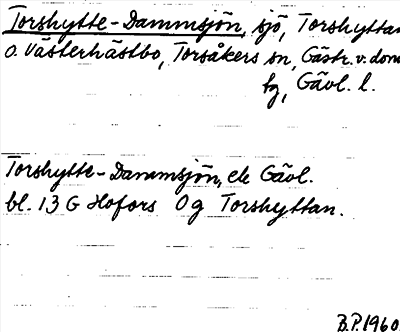 Torshytte-Dammsjön, sjö, Torshyttan
o. Västerhästbo, Torsåkers sn, Gästr. v. doms
fg, Gävl. l.
Torshytte-Dammsjön, ek Gävl.
bl. 13 G Hofors 0g Torshyttan.
B.P. 1960